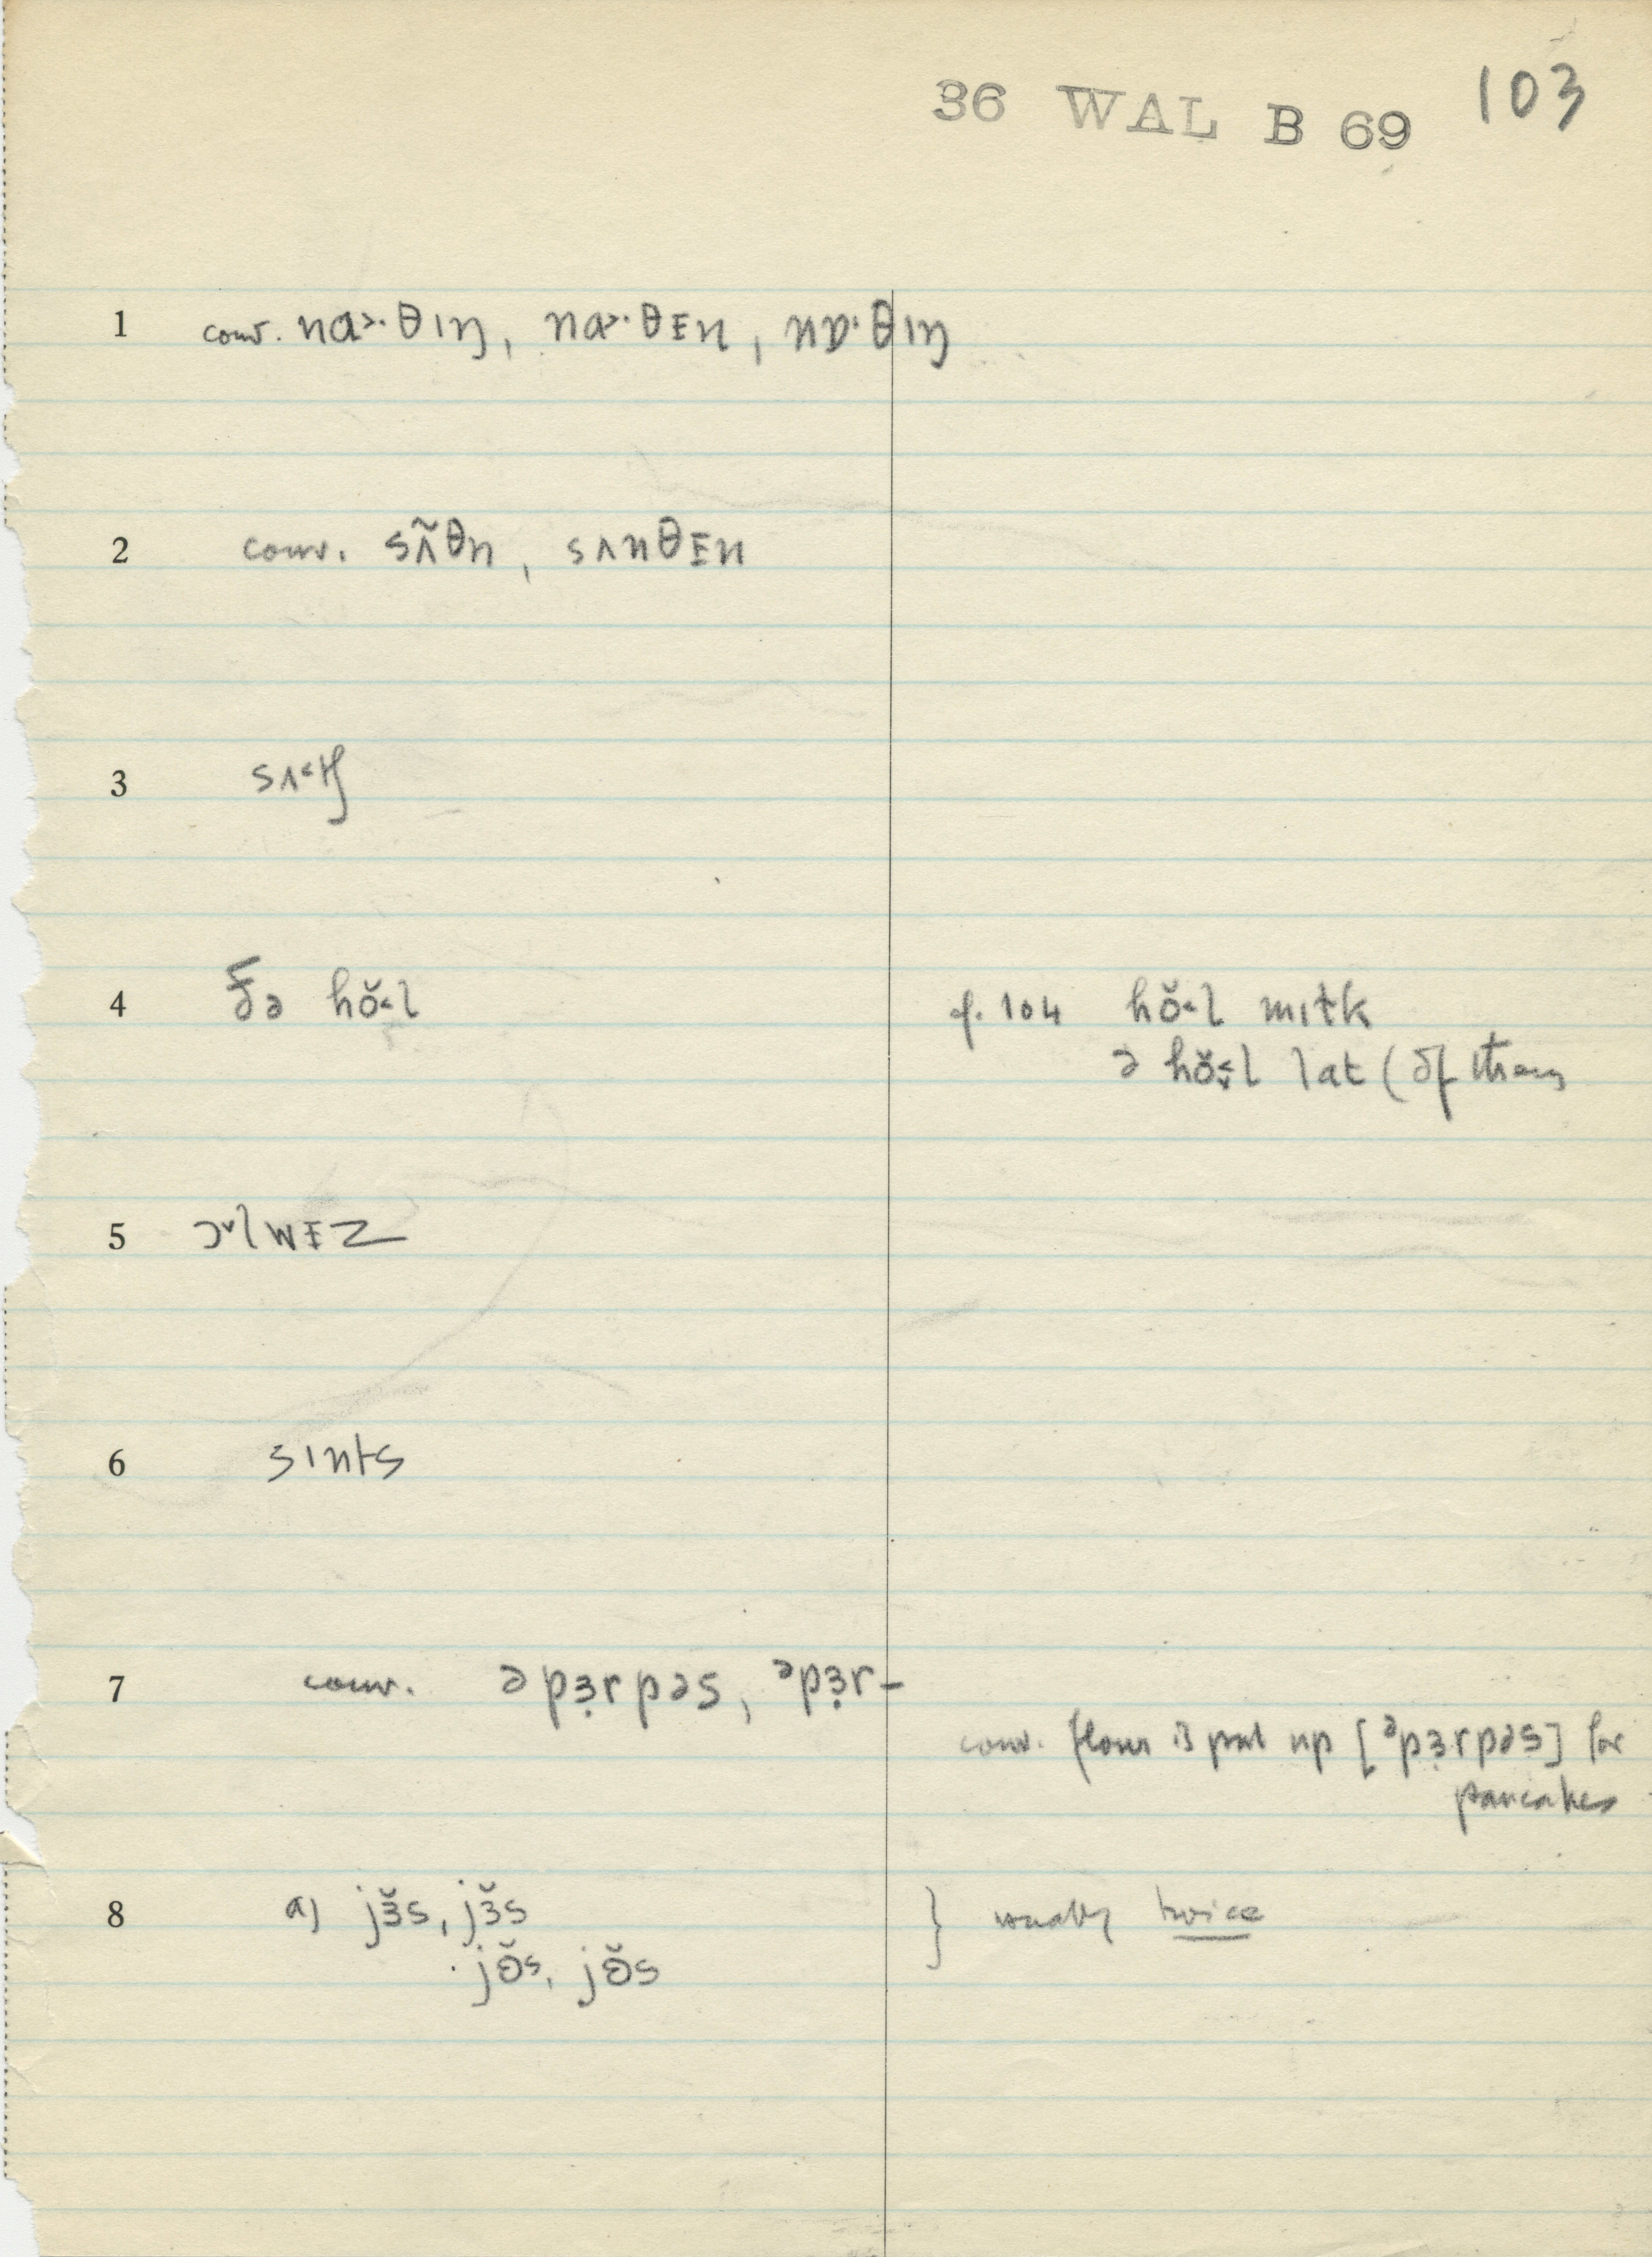 36 WAL B 69 103
1 conv. nɑ˃·θɪŋ, nɑ˃·θᴇn, nɒ·θɪŋ
2 conv. sʌ̃θn, sʌnθᴇn
3 sʌ˂tʃ
4 ðə hŏ˂l p. 104 hŏ˂l mɪɫk
ə hŏ˂l lat (əf
5 ɔ˅lwᴇz
6 sɪnts
7 conv. ə pɜ̣rpəs, ᵊpɜ̣r–
conv. flour is put up [ᵊpɜ̣rpəs] for
pancakes
8 a) jɜ̆s, jɜ̆s } usually twice
jɵ̆s, jɵ̆s